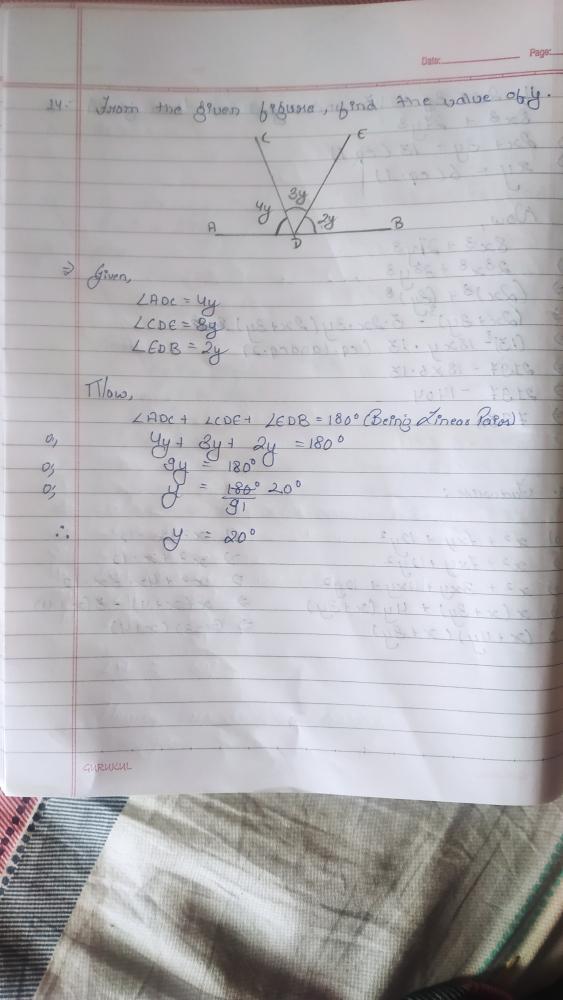 Date: Page:
14. From the given figure, find the value of y.
C E
4y 3y 2y
A D B
⇒ Given,
∠ADC = 4y
∠CDE = 3y
∠EDB = 2y
Now,
∠ADC + ∠CDE + ∠EDB = 180° (Being Linear Pairs)
0, 4y + 3y + 2y = 180°
0, 9y = 180°
0, y = 180° 20°
91
∴ y = 20°
GURUKUL